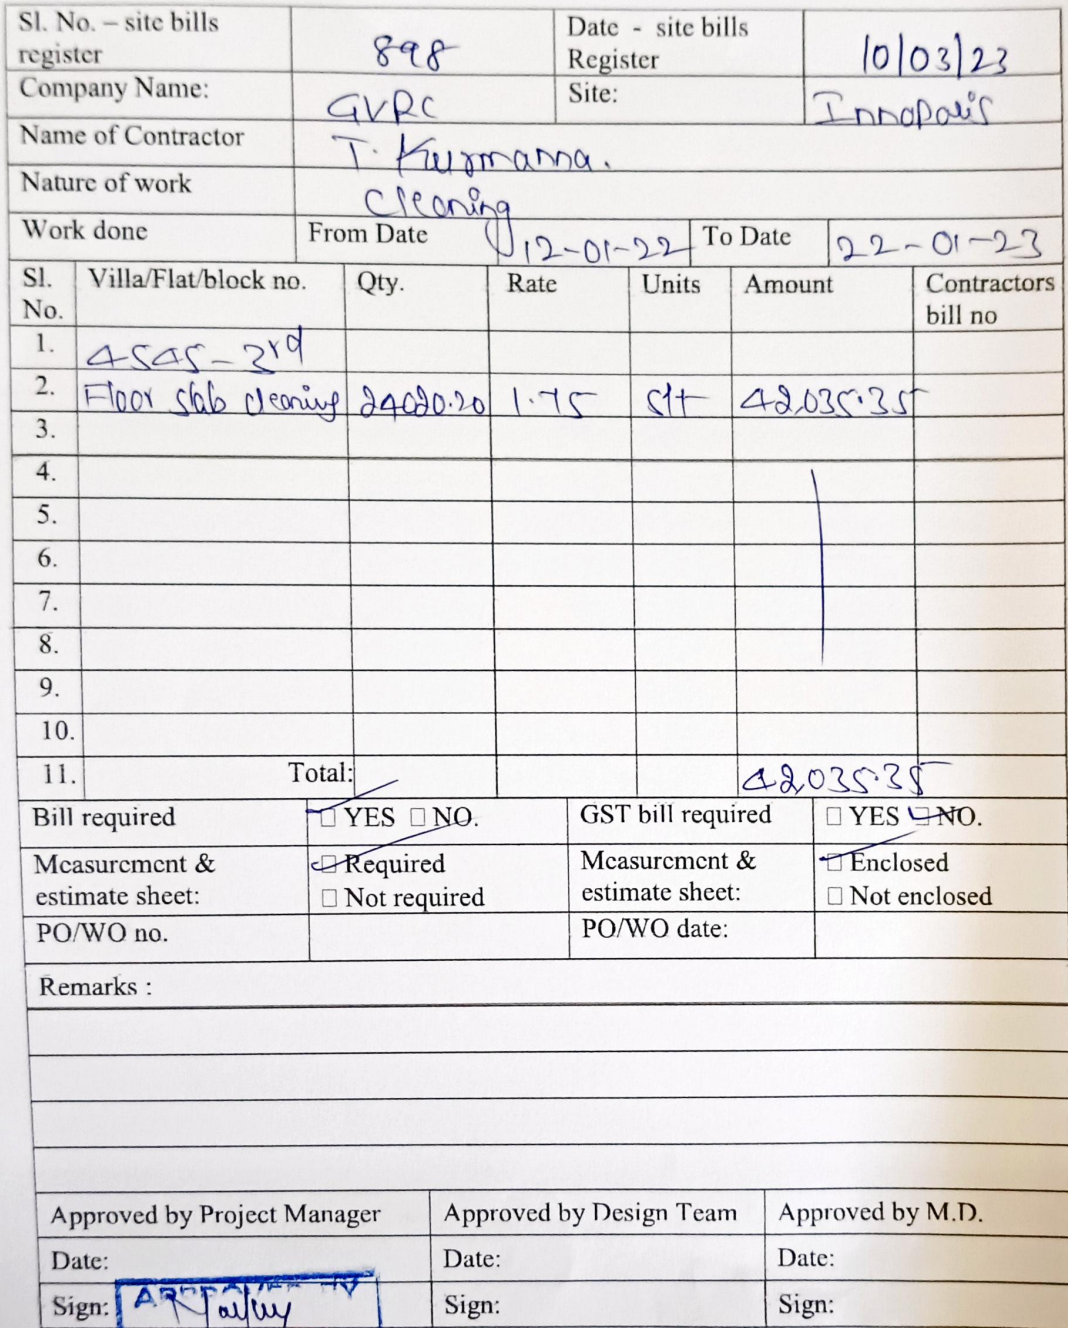 Sl. No. – site bills register 898 Date - site bills Register 10/03/23
Company Name: GVRC Site: Innopolis
Name of Contractor T. Kurmanna.
Nature of work Cleaning
Work done From Date 12-01-22 To Date 22-01-23
Sl. No. Villa/Flat/block no. Qty. Rate Units Amount Contractors bill no
1. 4545 - 3rd
2. Floor slab cleaning 24020.20 1.75 sft 42,035.35
3.
4.
5.
6.
7.
8.
9.
10.
11. Total: 42,035.35
Bill required □ YES □ NO. GST bill required □ YES □ NO.
Measurement & estimate sheet: □ Required □ Not required Measurement & estimate sheet: □ Enclosed □ Not enclosed
PO/WO no. PO/WO date:
Remarks :
Approved by Project Manager Approved by Design Team Approved by M.D.
Date: Date: Date:
Sign: Sign: Sign: